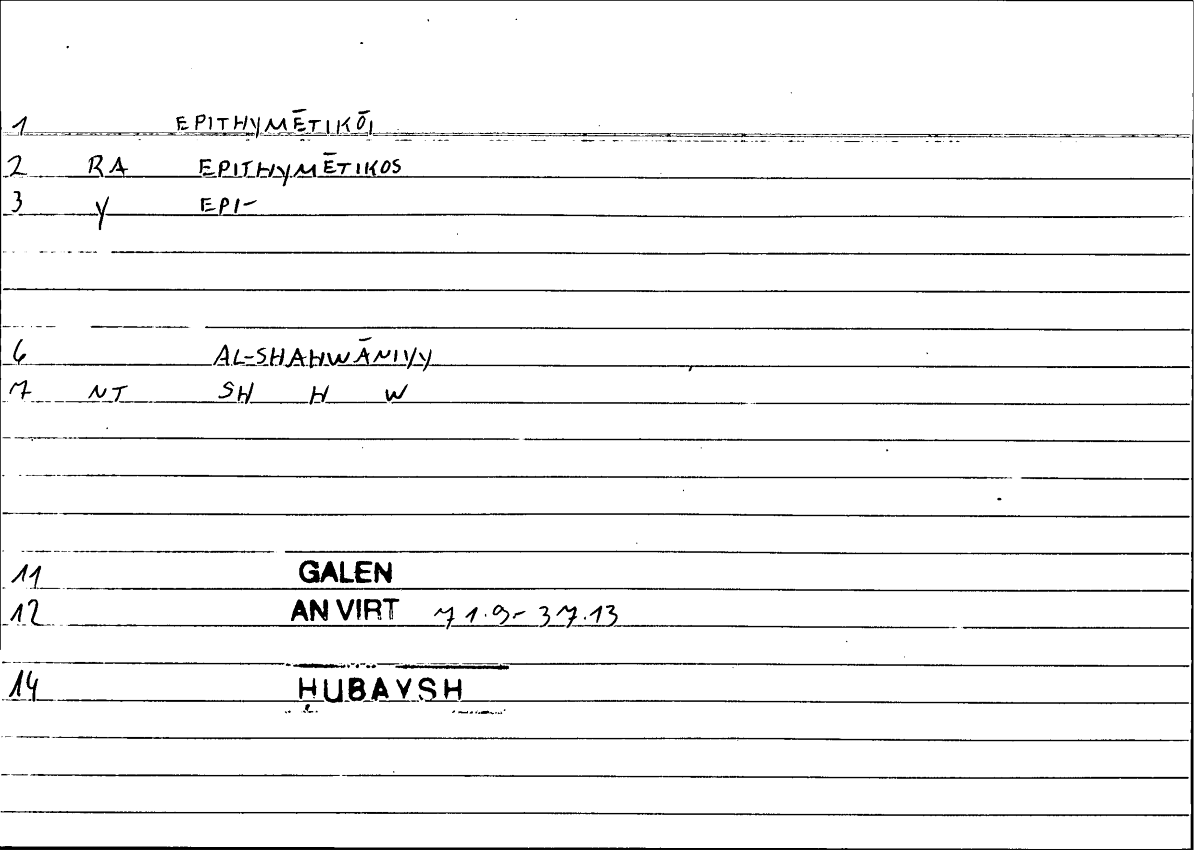 1 EPITHYMĒTIKŌI
2 RA EPITHYMĒTIKOS
3 Y EPI-
6 AL-SHAHWĀNIYY
7 NT SH H W
11 GALEN
12 AN VIRT 71.9-37.13
14 ḤUBAYSH